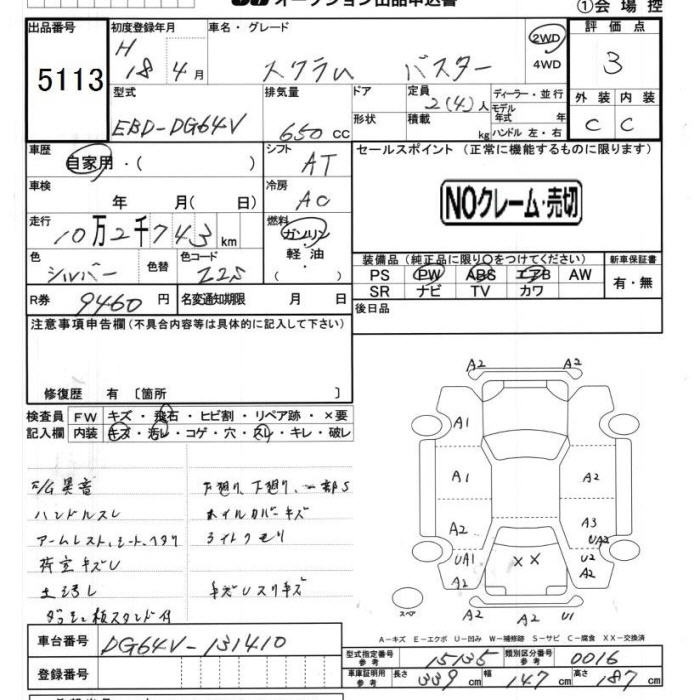 オークション出品申込書
①会場控
出品番号
5113
初度登録年月
H
18 4 月
車名・グレード
スクラム バスター
2WD
4WD
評価点
3
型式
EBD-DG64V
排気量
650 cc
ドア
形状
定員
2(4)人
積載
kg
ディーラー・並行
モデル
年式 年
ハンドル 左・右
外装 内装
C C
車歴
自家用・( )
シフト
AT
セールスポイント (正常に機能するものに限ります)
NOクレーム・売切
車検
年 月( 日)
冷房
AC
走行
10万2千743km
燃料
ガソリン・
軽油・
( )
色
シルバー
色替
色コード
Z2S
装備品 (純正品に限り○をつけてください)
PS PW ABS エアB AW
SR ナビ TV カワ
新車保証書
有・無
R券
9460 円
名変通知期限 月 日
後日品
注意事項申告欄(不具合内容等は具体的に記入して下さい)
修復歴 有 〔箇所 〕
検査員
記入欄
FW キズ・飛石・ヒビ割・リペア跡・×要
内装 キズ・汚レ・コゲ・穴・スレ・キレ・破レ
E/G異音
ハンドルスレ
アームレスト、シート、ヘタリ
荷室キズU
土汚レ
下廻り、下廻り、一部S
ホイルカバーキズ
ライトクモリ
キズUスリキズ
A2 A2
A1
A1 A2
A2 A3
UA2
UA1 XX U2
A2 A2
A2 A2 U1
スペア
A-キズ E-エクボ U-凹み W-補修跡 S-サビ C-腐食 XX-交換済
車台番号
DG64V-131410
登録番号
型式指定番号
参考
15135
類別区分番号
参考
0016
車庫証明用
参考
長さ 339 cm
幅 147 cm
高さ 187 cm